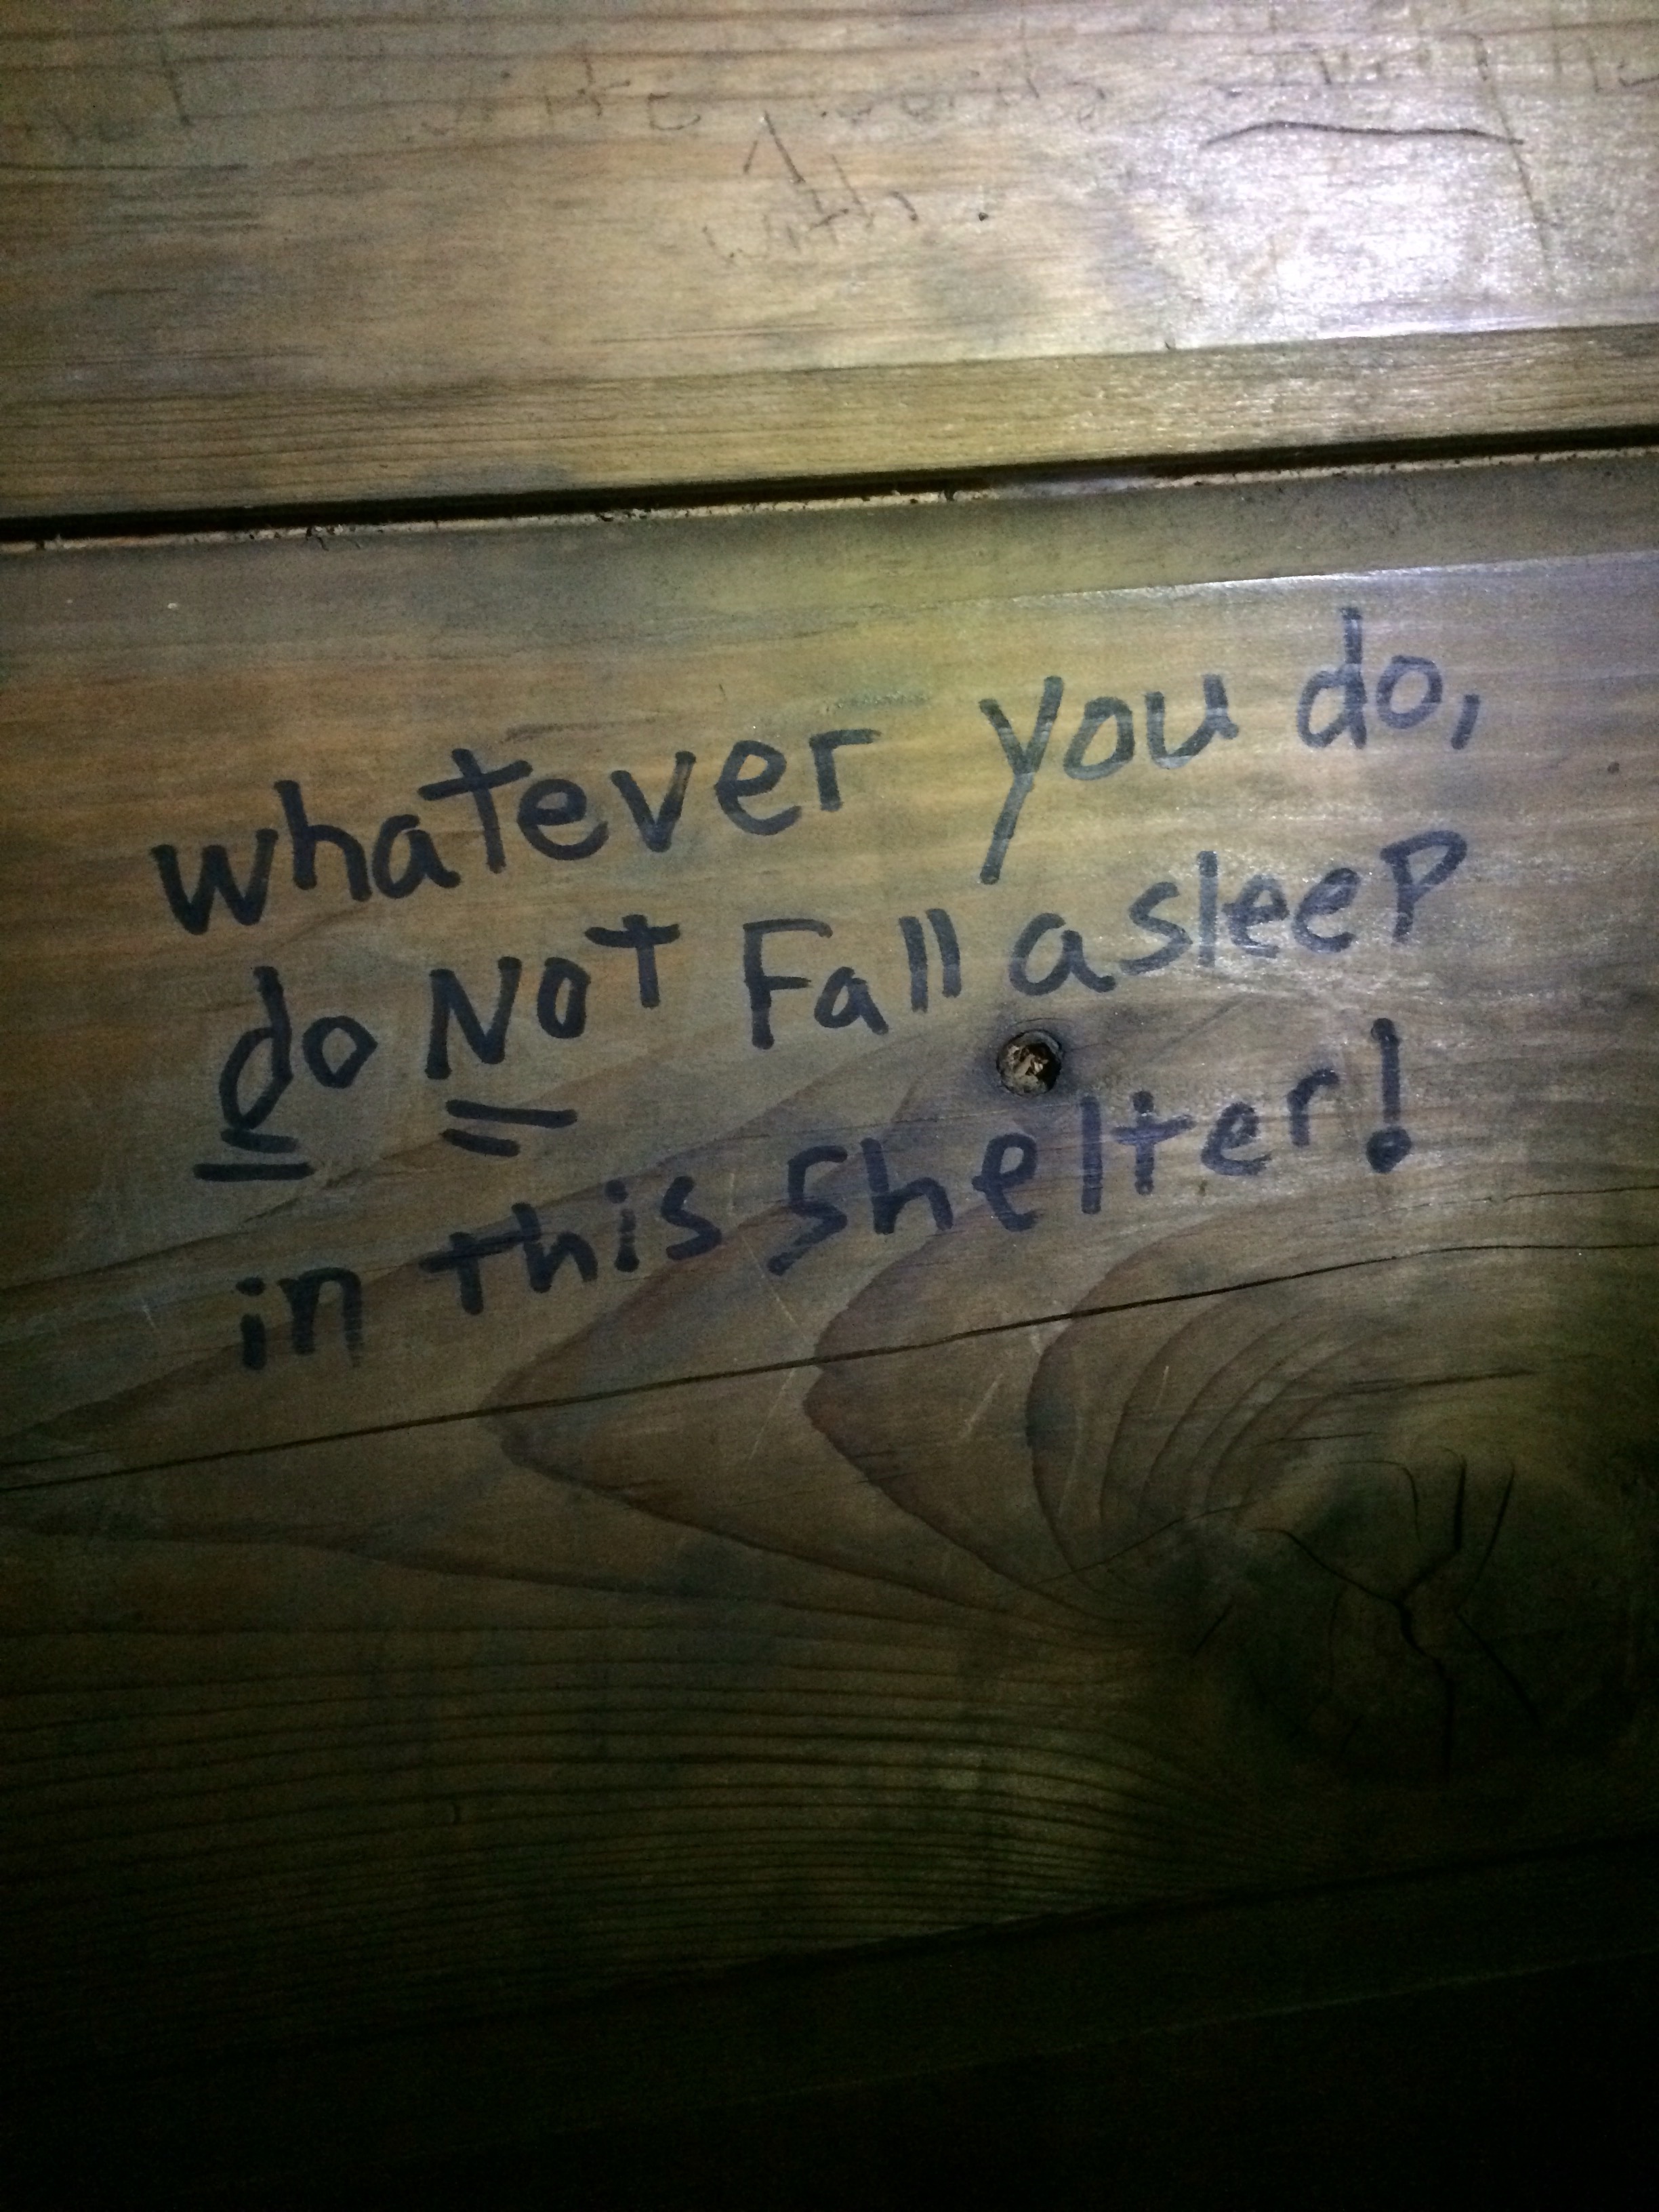 whatever you do,
do NOT Fall asleep
in this shelter!